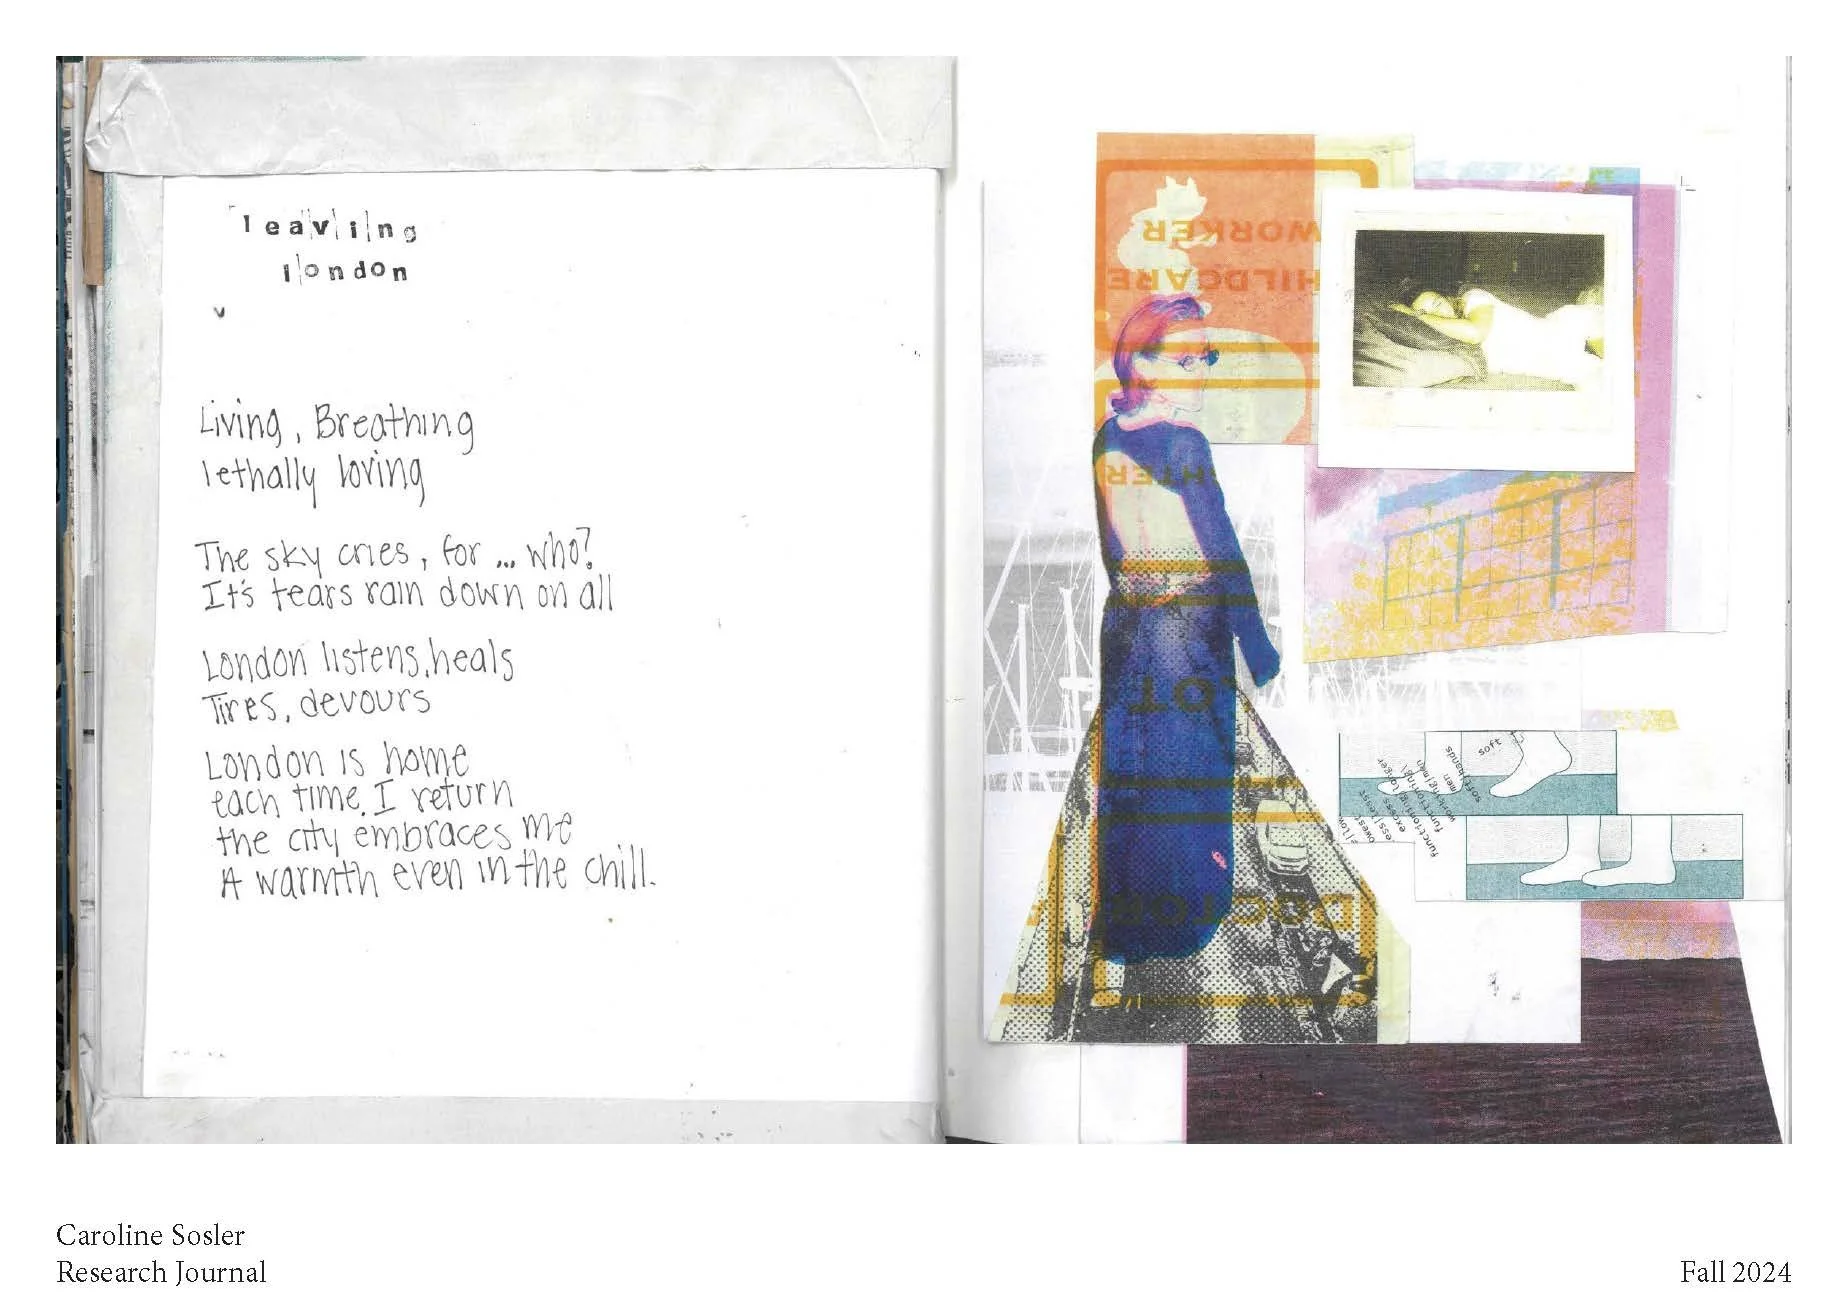 leaving
london
v
Living, Breathing
lethally loving
The sky cries, for ... who?
It's tears rain down on all
London listens, heals
Tires, devours
London is home
each time I return
the city embraces me
A warmth even in the chill.
WORKER
HILDCARE
HTER
LOT
DOCTOR
soft
soft hands
working men
functioning!
excess longer
functions
Caroline Sosler
Research Journal
Fall 2024